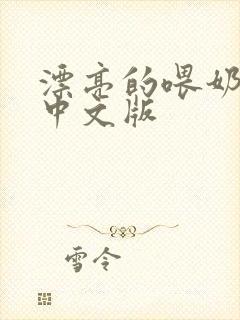 漂亮的喂奶
中文版
雪令